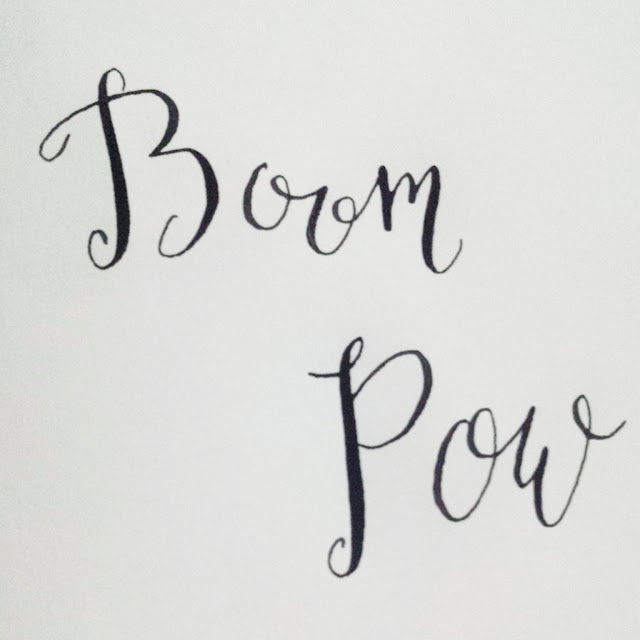 Boom
Pow